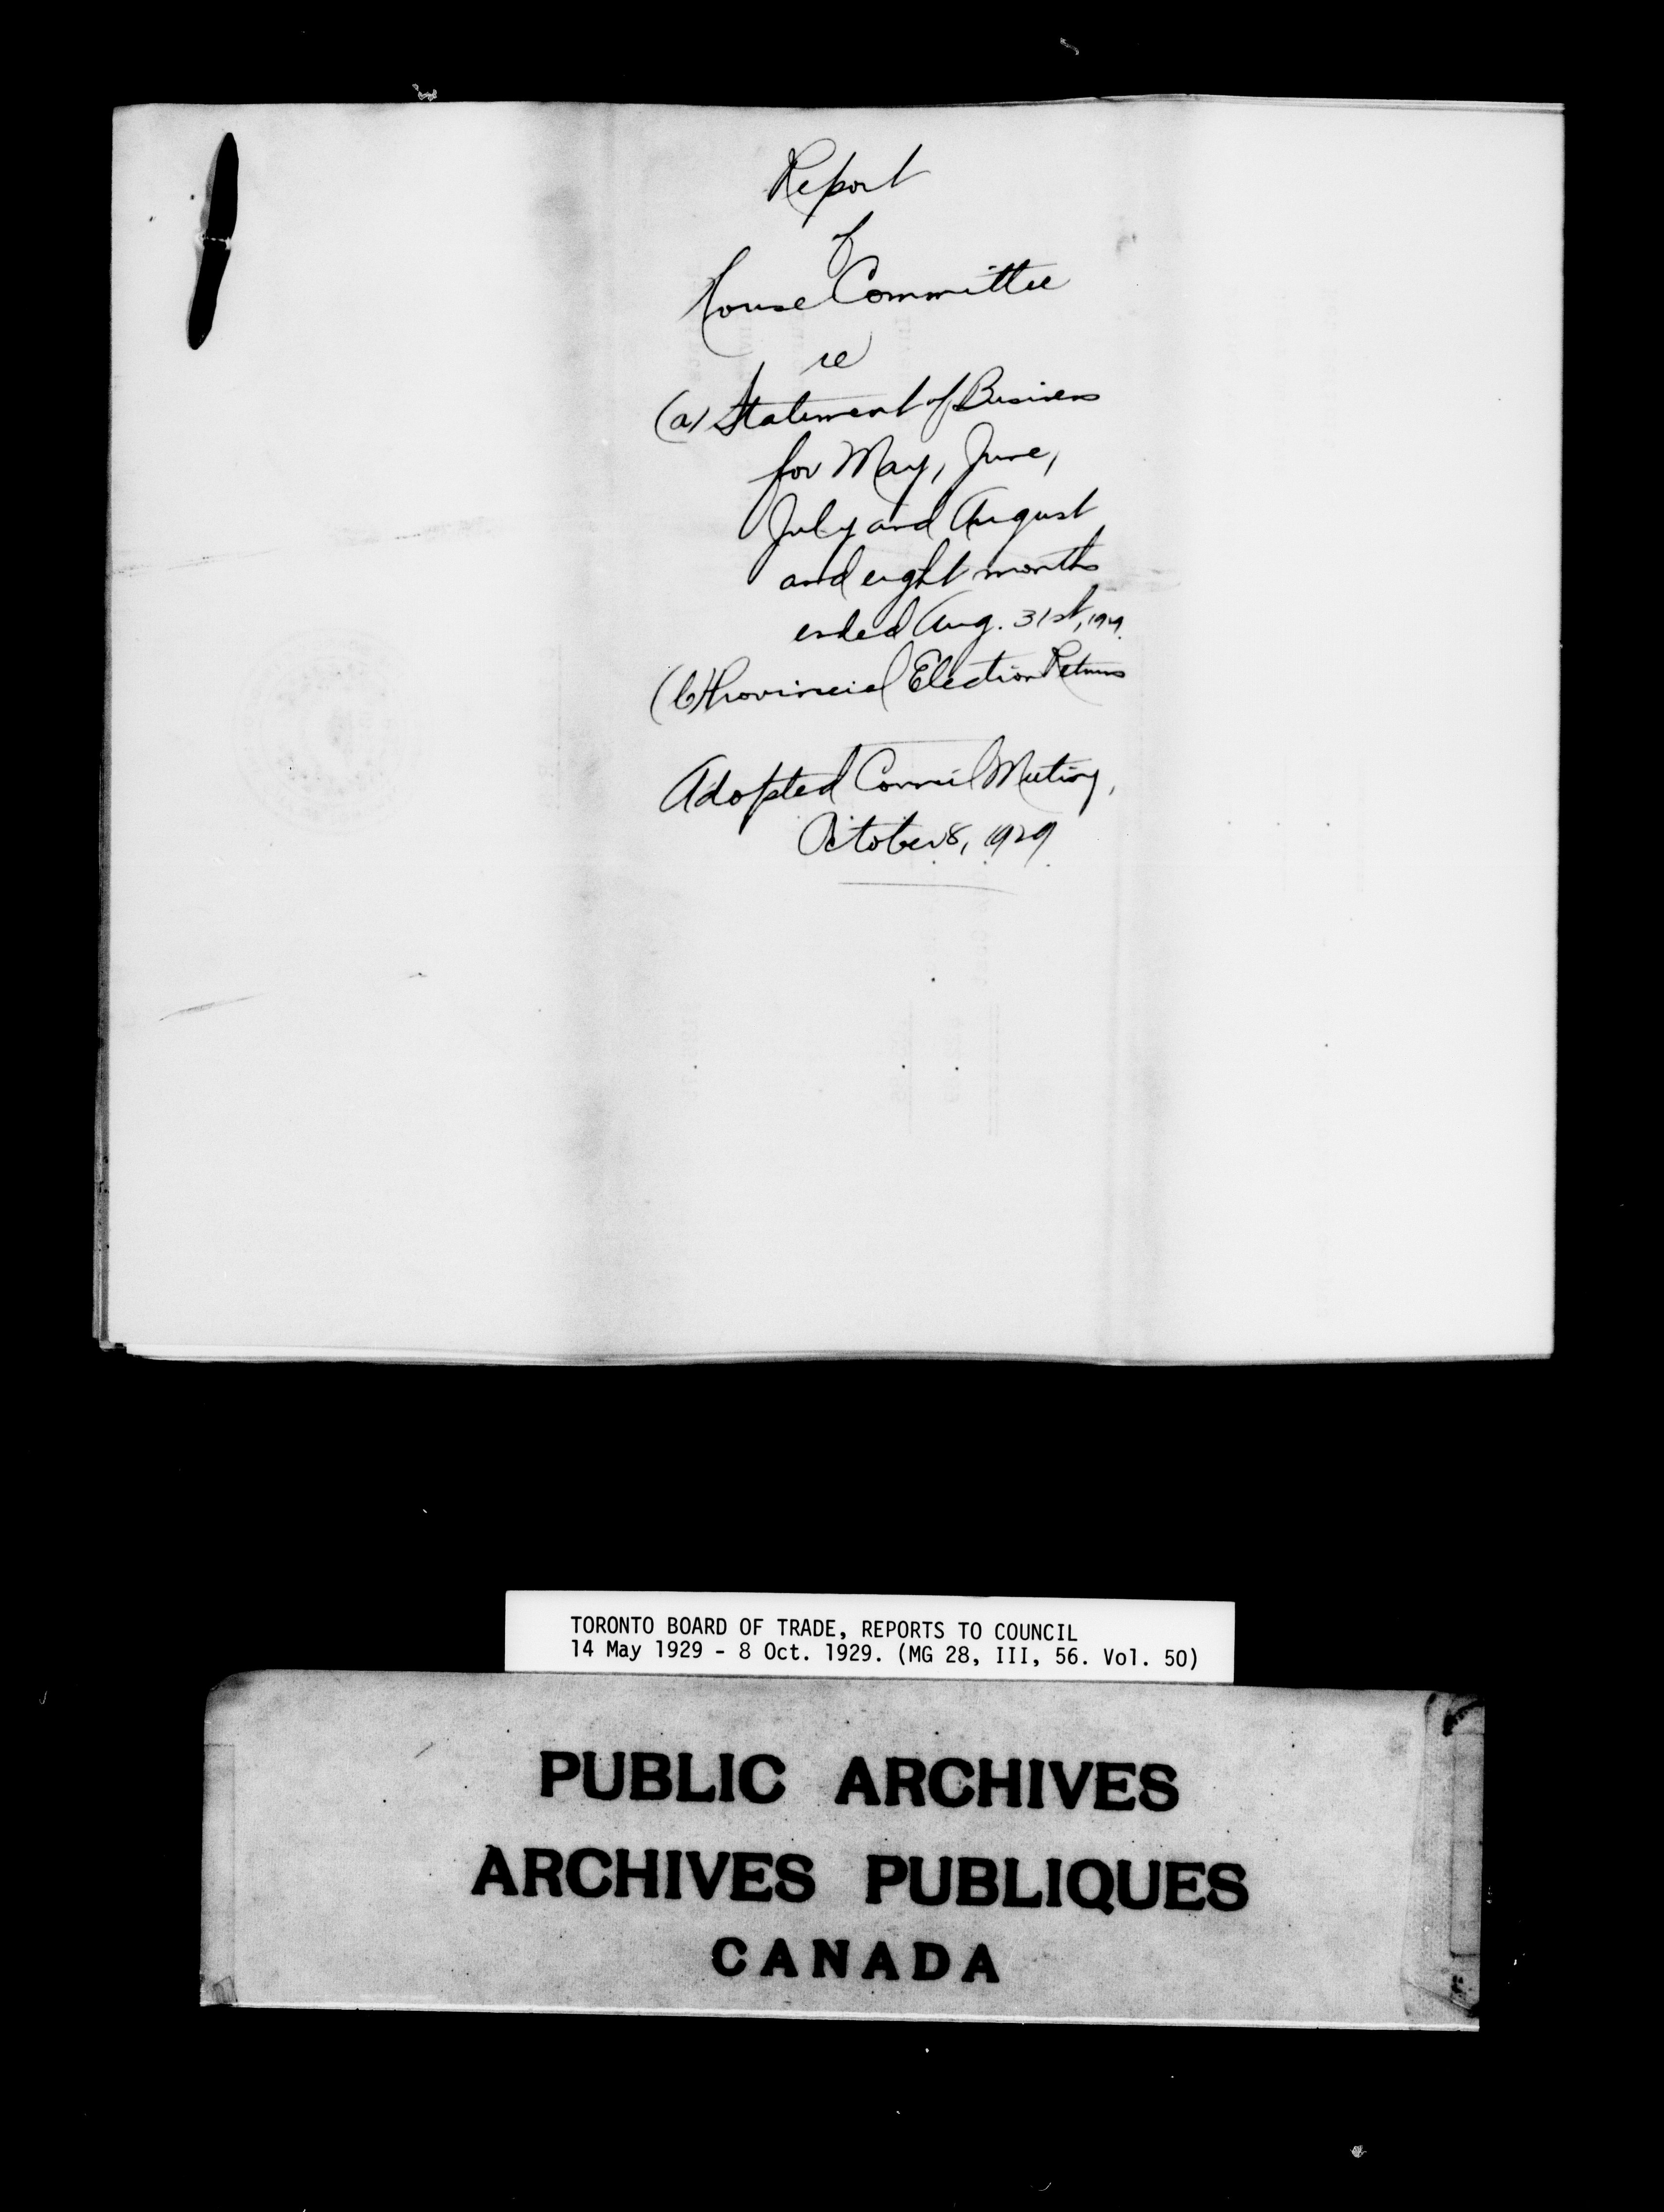 Report
of
House Committee
re
(a) Statement of Business
for May, June,
July and August
and eight months
ended Aug. 31st, 1929.
(b) Provincial Election Returns
Adopted Council Meeting,
October 8, 1929.
TORONTO BOARD OF TRADE, REPORTS TO COUNCIL
14 May 1929 - 8 Oct. 1929. (MG 28, III, 56. Vol. 50)
PUBLIC ARCHIVES
ARCHIVES PUBLIQUES
CANADA